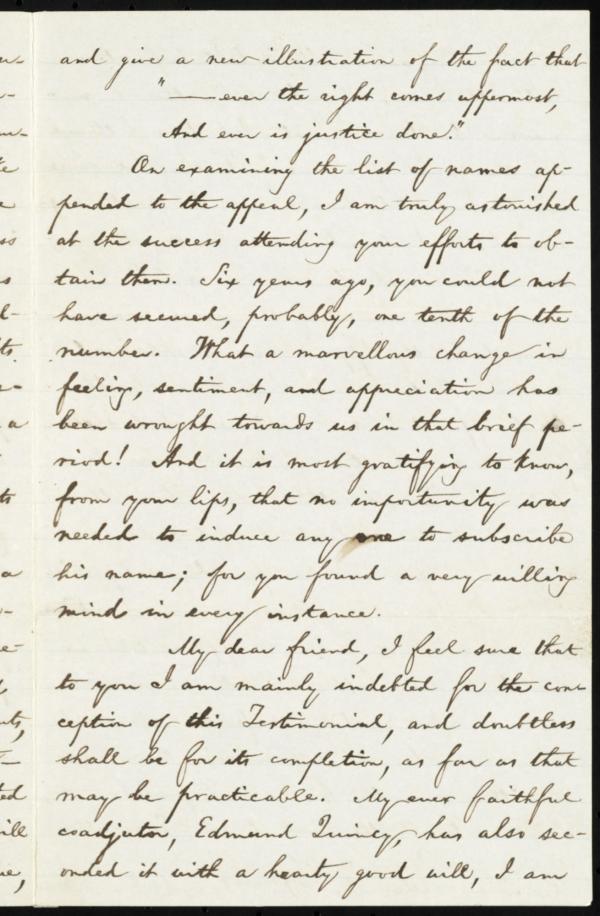 and give a new illustration of the fact that
"——ever the right comes uppermost,
And ever is justice done."
On examining the list of names ap-
pended to the appeal, I am truly astonished
at the success attending your efforts to ob-
tain them. Six years ago, you could not
have secured, probably, one tenth of the
number. What a marvellous change in
feeling, sentiment, and appreciation has
been wrought towards us in that brief pe-
riod! And it is most gratifying to know,
from your lips, that no importunity was
needed to induce any one to subscribe
his name; for you found a very willing
mind in every instance.
My dear friend, I feel sure that
to you I am mainly indebted for the con-
ception of this Testimonial, and doubtless
shall be for its completion, as far as that
may be practicable. My ever faithful
coadjutor, Edmund Quincy, has also sec-
onded it with a hearty good will, I am